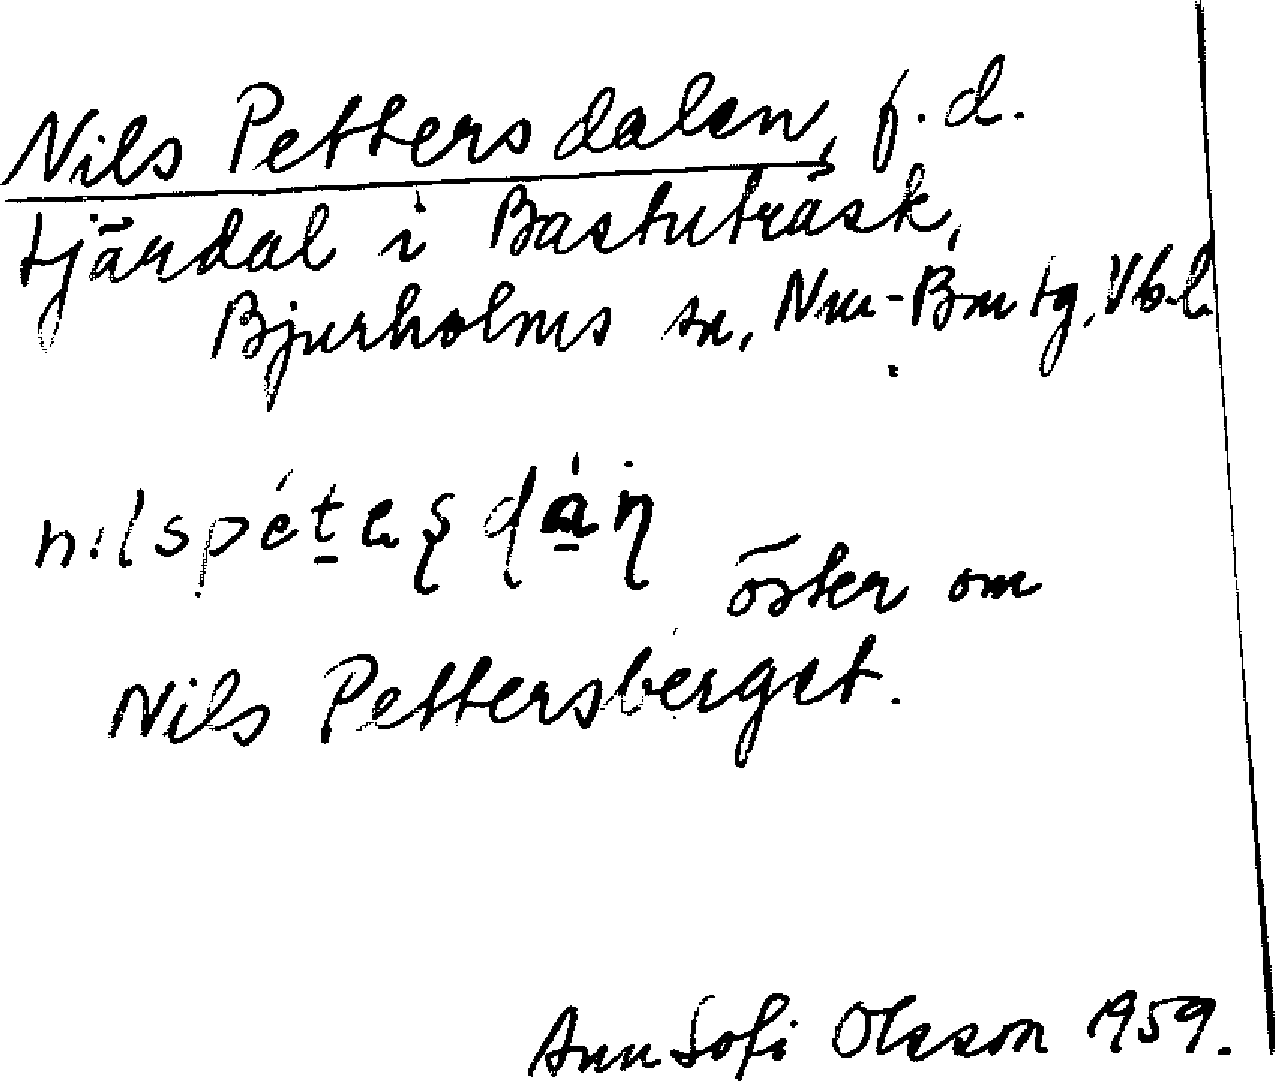 Nils Pettersdalen, f.d.
tjärdal i Bastuträsk,
Bjurholms sn, Nm-Bm tg, Vb.l.
öster om
Nils Pettersberget.
Ann Sofi Olsson 1959.